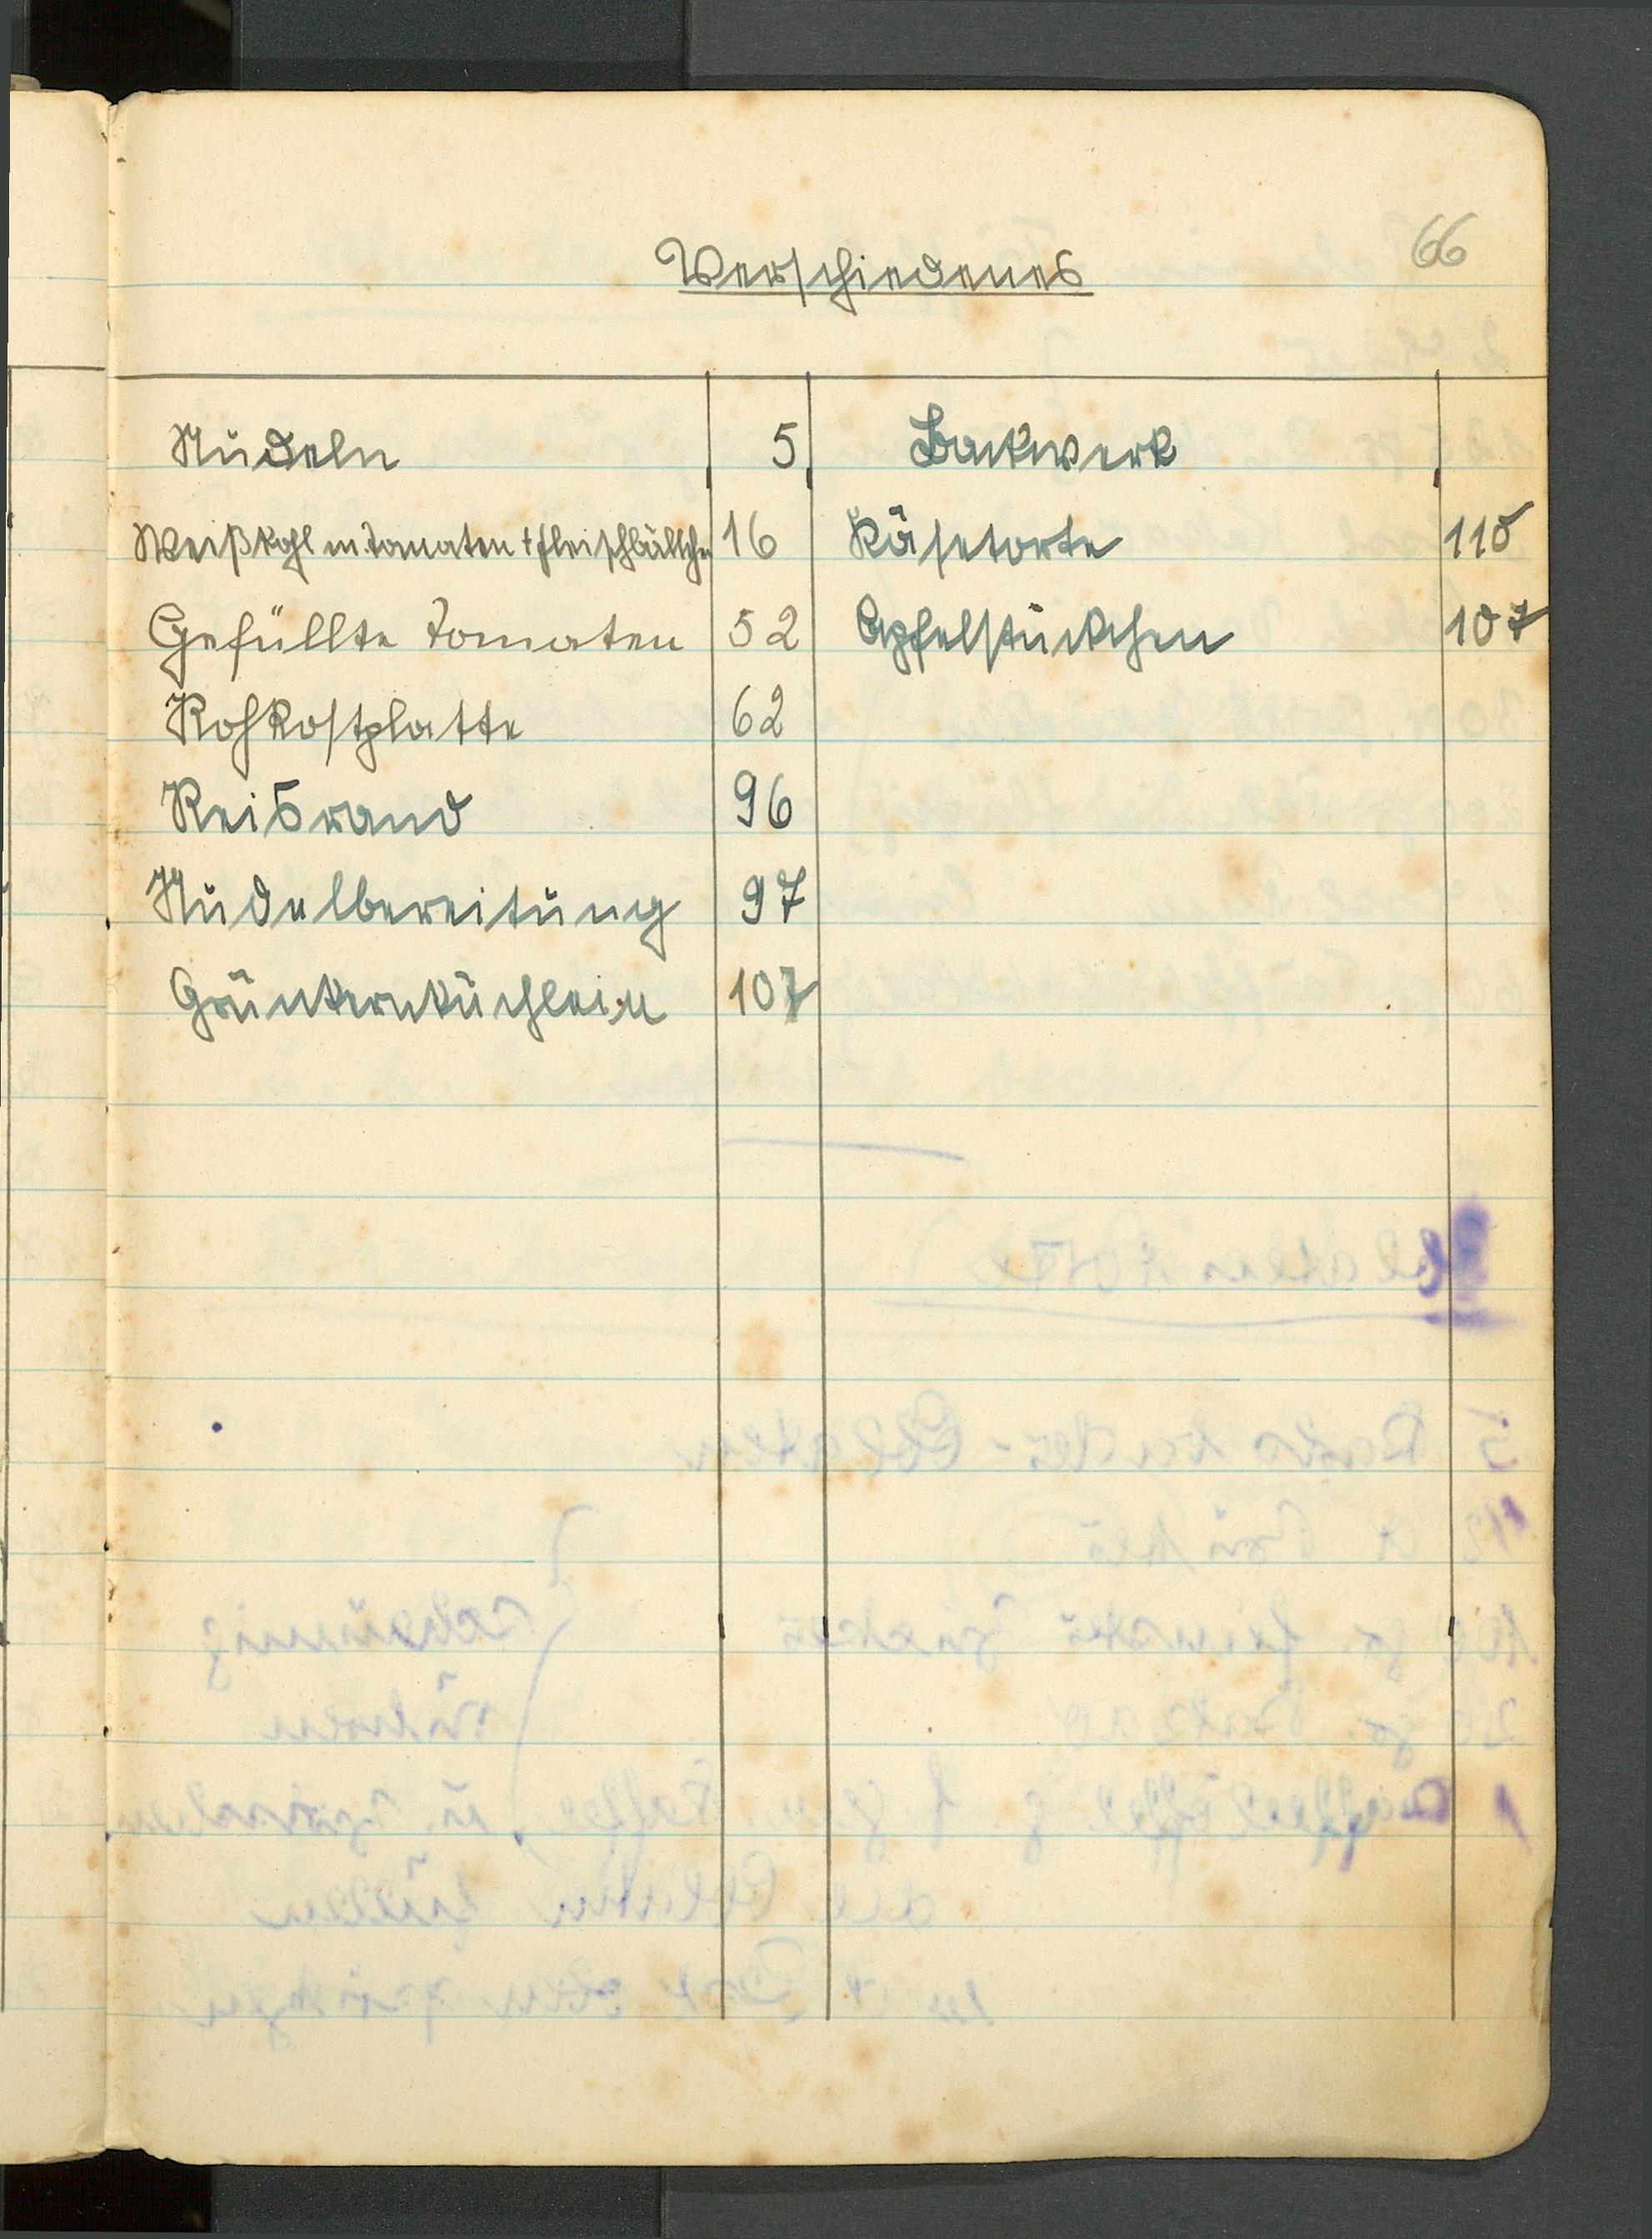 66
Verschiedenes
Nudeln 5 Backwerk
Weißkohl m Tomaten + Fleischbällchen 16 Käsetorte 115
Gefüllte Tomaten 52 Apfelstückchen 107
Rohkostplatte 62
Reisrand 96
Nudelbereitung 97
Grünkernküchlein 107